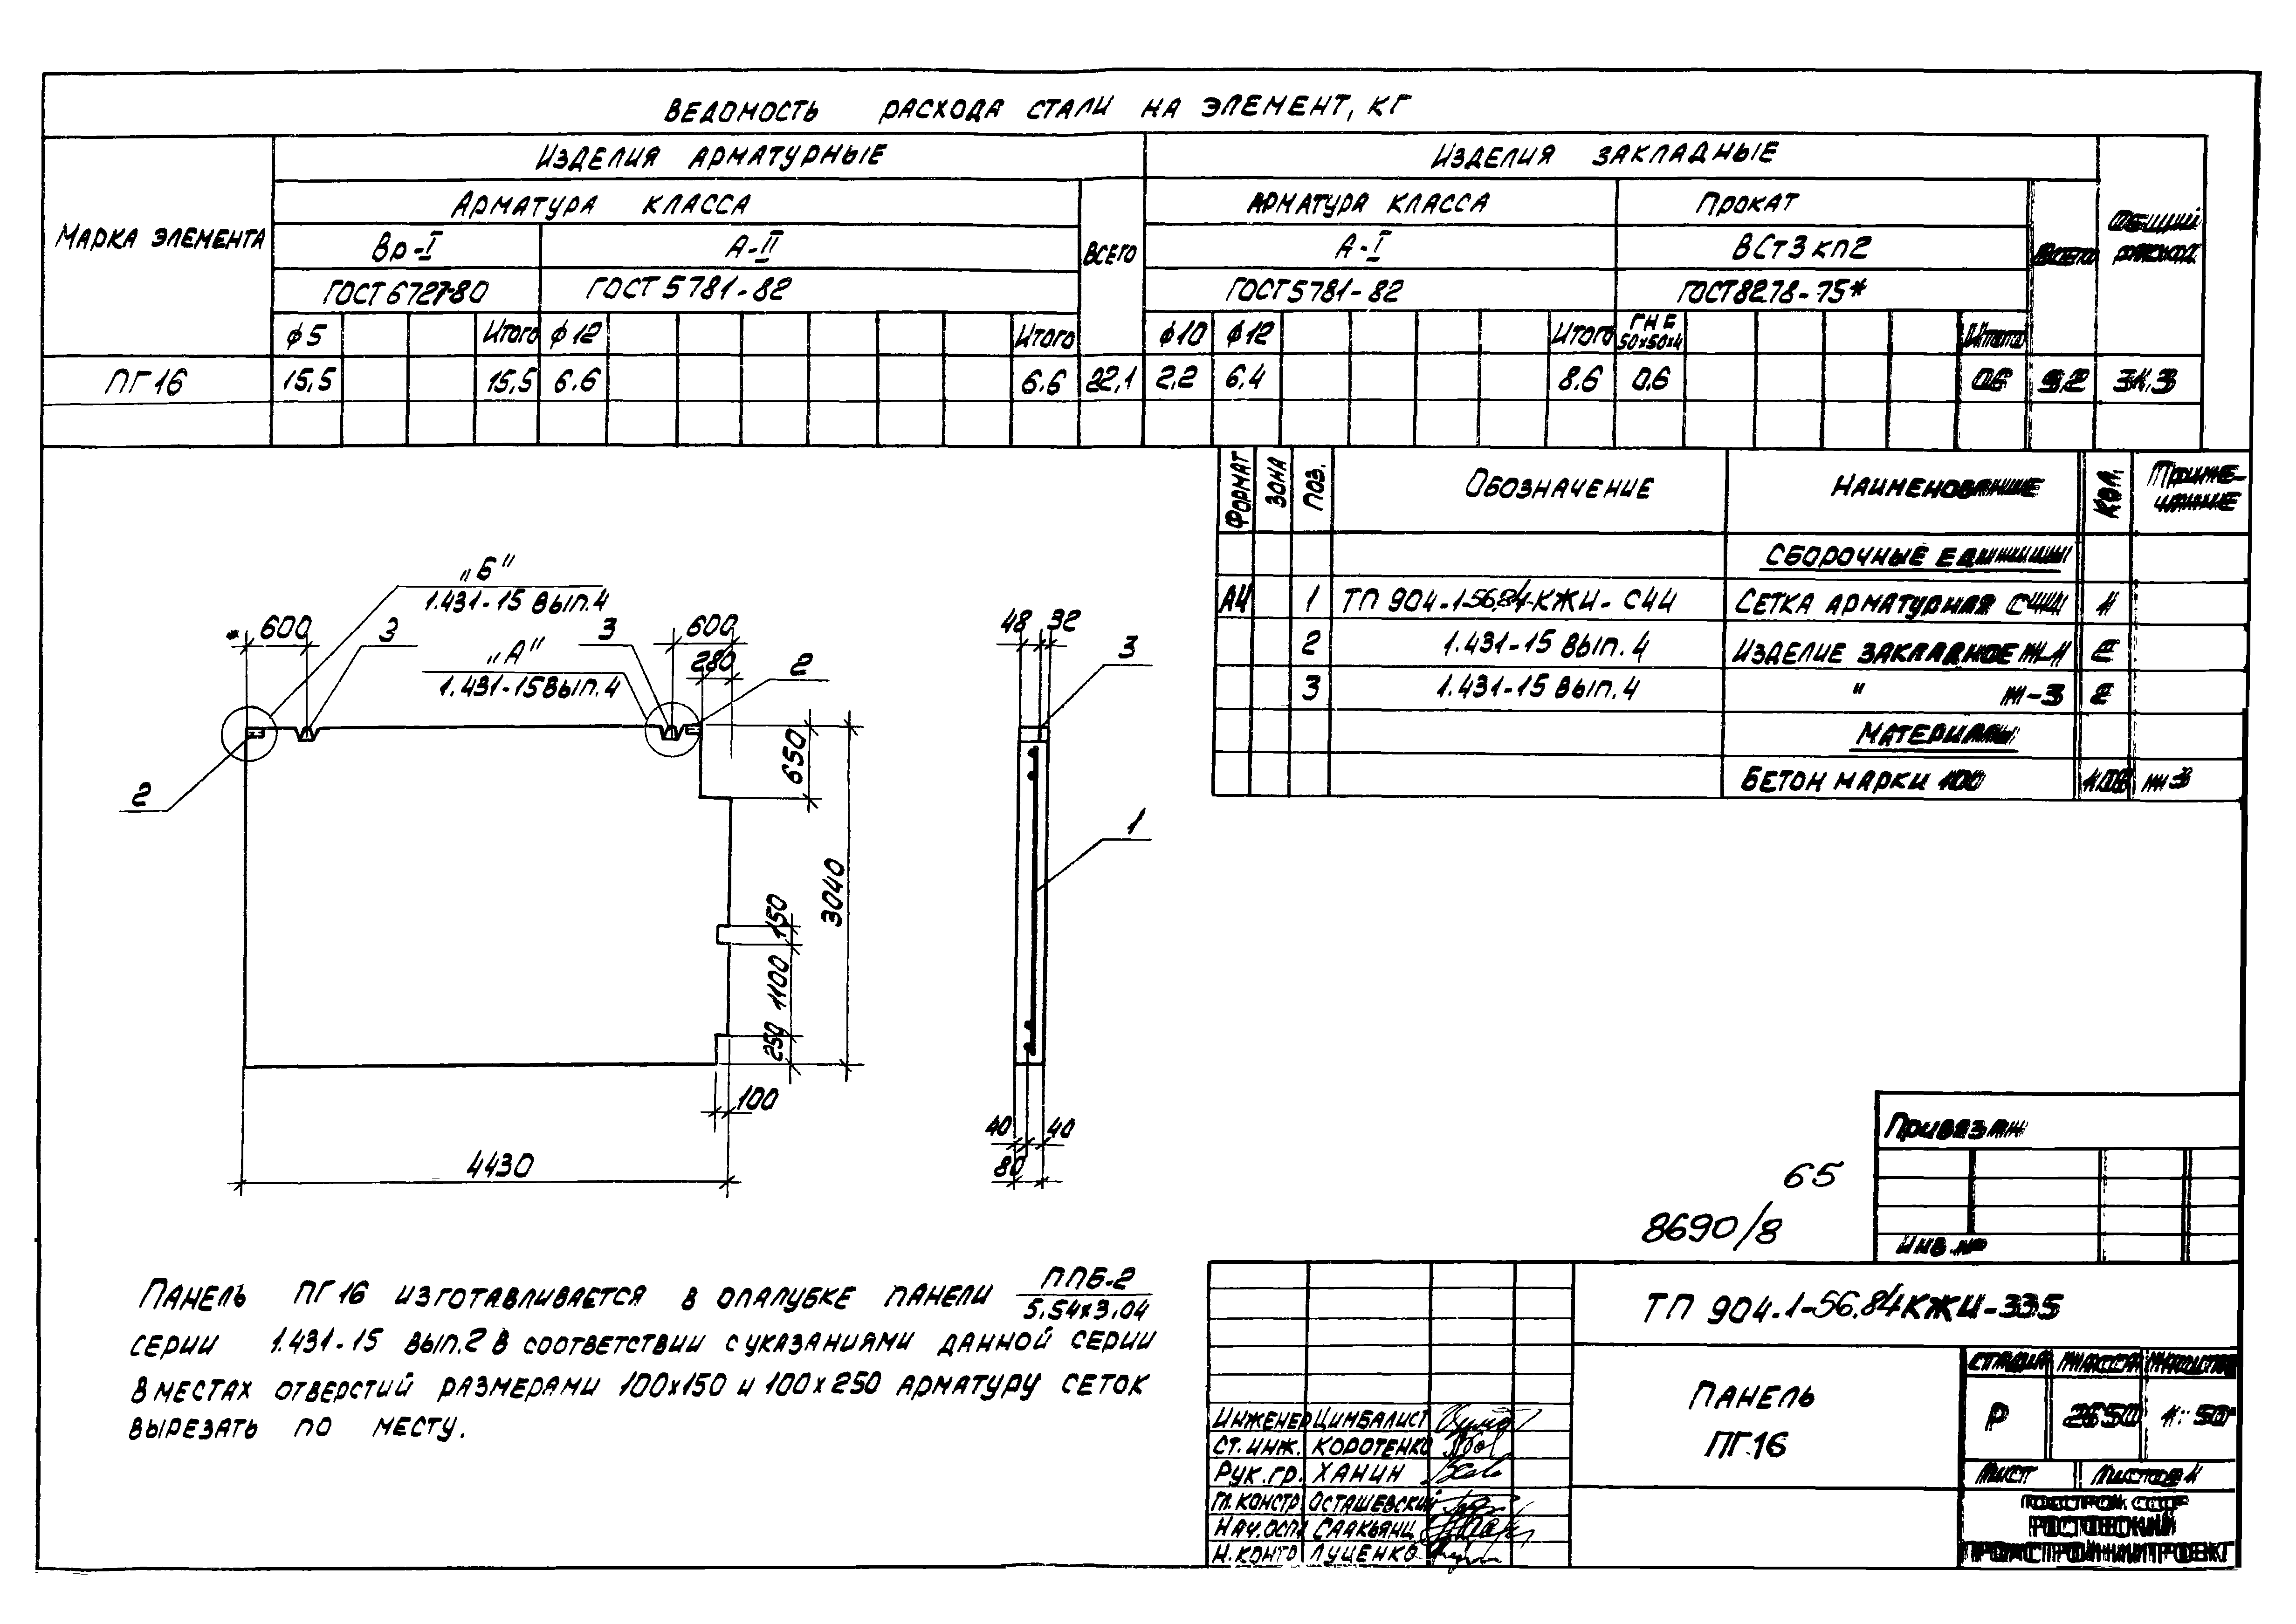 ВЕДОМОСТЬ РАСХОДА СТАЛИ НА ЭЛЕМЕНТ, КГ
МАРКА ЭЛЕМЕНТА
ИЗДЕЛИЯ АРМАТУРНЫЕ
ИЗДЕЛИЯ ЗАКЛАДНЫЕ
ОБЩИЙ РАСХОД
АРМАТУРА КЛАССА
ВСЕГО
АРМАТУРА КЛАССА
ПРОКАТ
ВСЕГО
Вр-I
А-II
А-I
ВСт3кп2
ГОСТ 6727-80
ГОСТ 5781-82
ГОСТ 5781-82
ГОСТ 8278-75*
ф5 Итого ф12 Итого ф10 ф12 Итого ГН С 50x50x4 Итого
ПГ16 15,5 15,5 6.6 6.6 22,1 2,2 6,4 8.6 0,6 0,6 9,2 31,3
ФОРМАТ ЗОНА ПОЗ. ОБОЗНАЧЕНИЕ НАИМЕНОВАНИЕ КОЛ. ПРИМЕ-
ЧАНИЕ
СБОРОЧНЫЕ ЕДИНИЦЫ
А4 1 ТП 904-1-56.84-КЖИ-С44 СЕТКА АРМАТУРНАЯ С44 1
2 1.431-15 ВЫП. 4 ИЗДЕЛИЕ ЗАКЛАДНОЕ М-1 2
3 1.431-15 ВЫП. 4 " М-3 2
МАТЕРИАЛЫ
БЕТОН МАРКИ 100 1.08 М3
„Б"
1.431-15 ВЫП.4
* 600 3
3 600
„А"
1.431-15 ВЫП.4
280
2
2
650
3040
150
1100
250
100
4430
48 32
3
1
40 40
80
ПРИВЯЗАН
ИНВ.№
65
8690/8
ПАНЕЛЬ ПГ16 ИЗГОТАВЛИВАЕТСЯ В ОПАЛУБКЕ ПАНЕЛИ ППБ-2
5.54x3.04
СЕРИИ 1.431-15 ВЫП.2 В СООТВЕТСТВИИ С УКАЗАНИЯМИ ДАННОЙ СЕРИИ
В МЕСТАХ ОТВЕРСТИЙ РАЗМЕРАМИ 100x150 И 100x250 АРМАТУРУ СЕТОК
ВЫРЕЗАТЬ ПО МЕСТУ.
ТП 904.1-56.84 КЖИ-335
ПАНЕЛЬ
ПГ16
СТАДИЯ МАССА МАСШТАБ
Р 2650 1:50
ЛИСТ ЛИСТОВ 1
ГОССТРОЙ СССР
РОСТОВСКИЙ
ПРОМСТРОЙНИИПРОЕКТ
ИНЖЕНЕР ЦИМБАЛИСТ
СТ. ИНЖ. КОРОТЕНКО
РУК. ГР. ХАНИН
ГЛ. КОНСТР ОСТАШЕВСКИЙ
НАЧ. ОСП1 СААКЬЯНЦ
Н. КОНТР ЛУЦЕНКО